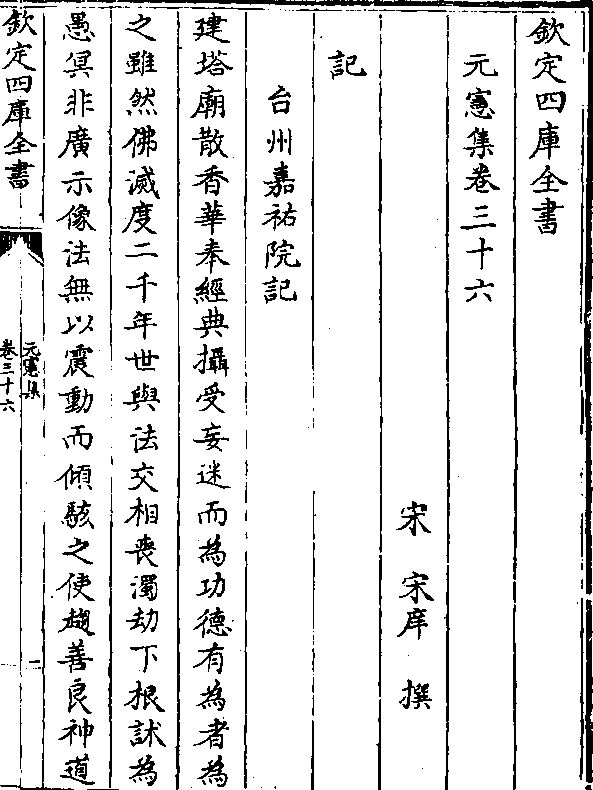 欽定四庫全書
元憲集卷三十六
宋　宋庠　撰
記
台州嘉祐院記
建塔廟散香華奉經典攝受妄迷而為功德有為者為
之雖然佛滅度二千年世與法交相喪濁劫下根訹為
愚冥非廣示像法無以震動而傾駭之使趨善良神道
欽定四庫全書
元憲集
卷三十六
一